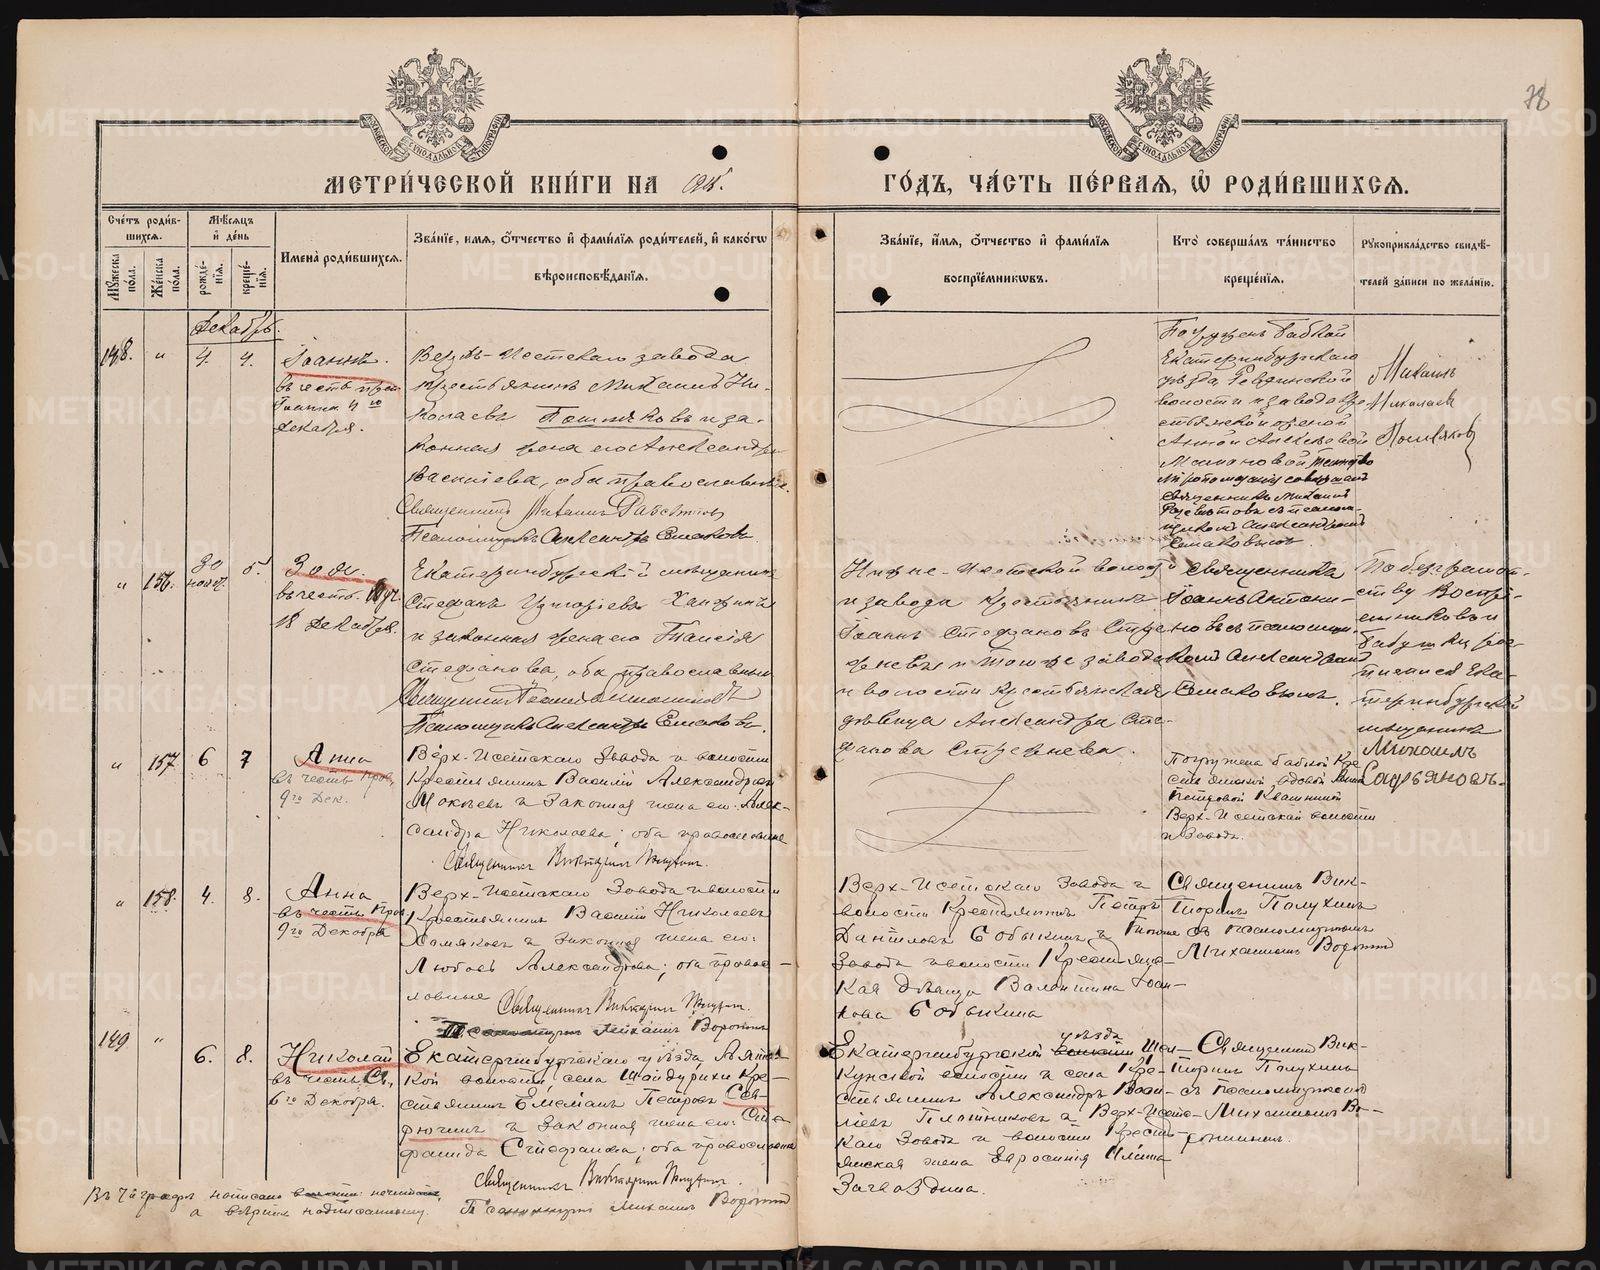 78
МЕТРИ́ЧЕСКОЙ КНИ́ГИ НА 1915.
ГО́ДЪ, ЧА́СТЬ ПЕ́РВАЯ, Ѽ РОДИ́ВШИХСЯ.
Сче́тъ роди́вшихся.
Мꙋ́жеска по́ла.
Же́нска по́ла.
Мѣ́сяцъ и҆ де́нь
рожде́нїя.
креще́нїя.
И҆мена̀ роди́вшихся.
Зва́нїе, и҆мя, ѻ҆́тчество и҆ фами́лїя роди́телей, и҆ како́гѡ
вѣроисповѣ́данїя.
Зва́нїе, и҆́мя, ѻ҆́тчество и҆ фами́лїя
воспрїе́мникѡвъ.
Кто̀ соверша́лъ та́инство
креще́нїя.
Рꙋкоприкла́дство свидѣ́телей за́писи по жела́нїю.
Декабрь.
148. " 4. 4. Іоаннъ.
въ честь преп.
Іоанна 4го
Декабря.
Верхъ-Исетскаго завода
крестьянинъ Михаилъ Ни-
колаевъ Пошляковъ и за-
конная жена его Александра
Васильева, оба православные.
Священникъ Михаилъ
Псаломщикъ Александръ Ермаковъ.
Погружен бабкой
Екатеринбургскаго
уѣзда, Ревдинской
волости и завода кре-
стьянской женой
Анной Алексѣевой
Таинство
мѵропомазанія совершалъ
священникъ Михаилъ
съ псалом-
щикомъ Александромъ
Ермаковымъ.
Михаилъ
Николаевъ
Пошляковъ
" 156. 30 нояб. 5. Зоя.
въ честь муч.
18 Декабря.
Екатеринбургскій мѣщанинъ
Стефанъ Григоріевъ
и законная жена его Таисія
Стефанова, оба православные
Псаломщикъ Александръ Ермаковъ.
Нижне-Исетской волости
и завода крестьянинъ
Іоаннъ Стефановъ Стре-
жневъ и того же завода
и волости крестьянская
дѣвица Александра Сте-
фанова Стрежнева.
Священникъ
Іоаннъ Антони-
новъ съ псаломщи-
комъ Александромъ
Ермаковымъ.
По безграмот-
ству воспрі-
емниковъ и
росписался Ека-
теринбургскій
мѣщанинъ
Михаилъ
" 157. 6 7 Анна
въ честь Прав.
9го Дек.
Верх-Исетскаго Завода и волости
Крестьянинъ Василій Александровъ
Мокѣевъ и Законная жена его: Алек-
сандра Николаева; оба православные
Священникъ Викторинъ Полухинъ.
Погружена бабкой Кре-
стьянской вдовой Анной
Петровой
Верх-Исетской волости
и Завода.
" 158. 4. 8. Анна
въ честь Прав.
9го Декабря
Верх-Исетскаго Завода и волости
Крестьянинъ Василій Николаевъ
Хомяковъ и Законная жена его:
Любовь Александрова; оба правос-
лавные Священникъ Викторинъ Полухинъ.
Псаломщикъ Михаилъ Воротнинъ
Верх-Исетскаго Завода и
волости Крестьянинъ Петръ
Даниловъ Собыкинъ и того же
Завода и волости Крестьянс-
кая дѣвица Валентина Іоан-
нова Собыкина
Священникъ Вик-
торинъ Полухинъ
съ псаломщикомъ
Михаиломъ Воротнин
149 " 6. 8. Николай
въ честь Св.
6го Декабря.
Екатеринбургскаго уѣзда,
кой волости, села Шайдурихи Кре-
стьянинъ Емеліанъ Петровъ Сев-
рюгинъ и Законная жена его: Сте-
фанида Стефанова; оба православные
Священникъ Викторинъ Полухинъ.
Псаломщикъ Михаилъ Воротнин
уѣзда
Екатеринбургской волости Шел-
кунской волости и села Кре-
стьянинъ Александръ Васи-
ліевъ Плотниковъ и Верх-Исетс-
каго Завода и волости Кресть-
янская жена Евросинія Ильина
Загвоздина.
Священникъ Вик-
торинъ Полухинъ
съ псаломщикомъ
Михаиломъ Во-
ротнинымъ.
Въ 7й графѣ написано волости не читать,
а вѣрить надписанному.